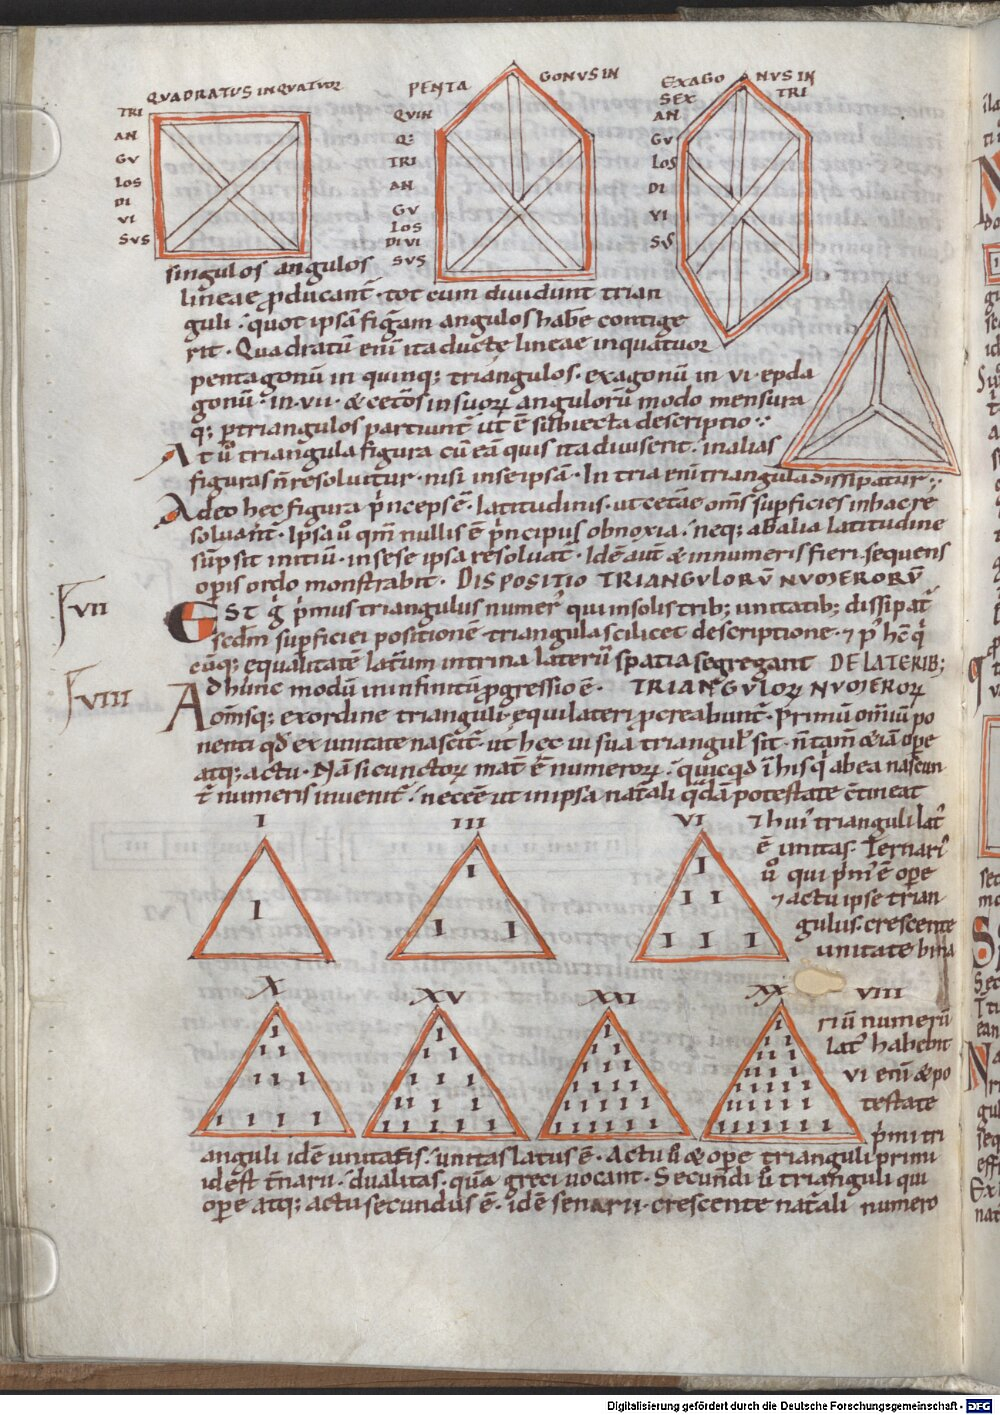 QVADRATUS INQVATVOR
TRI
AN
GV
LOS
DI
VI
SVS
PENTA GONVS IN
QVIN
Q:
TRI
AN
GV
LOS
DIVI
SVS
EXAGO NVS IN
SEX TRI
AN
GV
LOS
DI
VI
SVS
singulos angulos
lineae ꝓducant̄ · tot eum diuidunt trian
guli · quot ipsā figᷓam angulos habe contige
rit · Quadratū eni͞ ita ductę lineae inquatuor
pentagonū in quinq; triangulos · exagonū in vi · epda
gonū · in · vii · & cetos̄ insuoꝝ anguloꝝ modo mensura
q; ꝑtriangulos partiunt̄ ut ē subiecta descriptio
At ū triangula figura cū eā quis ita diuiserit · inalias
figuras n̄ resoluitur · nisi inseipsā · In tria eni͞ triangula dissipatur
Adeo hec figura p̄nceps ē · latitudinis · ut cetae om̄s sup̄ficies inhac re
soluant̄ · Ipsa ū qm̄ nullis ē p̄ncipiis obnoxia · neq; ab alia latitudine
sūpsit initiū · in sese ipsa resoluat̄ · Idē aut̄ & innumeris fieri sequens
opis ordo monstrabit · DISPOSITIO TRIANGVLORŪ NVMERORŪ
F VII
EST g̊ p̄mus triangulus numer᷒ qui insolis trib; unitatib; dissipat̄
scdm̄ sup̄ficiei positionē triangula scilicet descriptione · ⁊ p᷒ hc̄ q̊
cūq; equalitatē lat̄um intrina laterū spatia segregant DE LATERIB;
F VIII
Ad hunc modū ininfinitū ꝓgressio ē · TRIANGVLOꝜ NVMEROꝜ
om̄sq; exordine trianguli · equilateri ꝓcreabunt̄ · Primū om̄iū po
nenti qd̄ ex unitate nascit̄ · ut hec ui sua triangul᷒ sit · n̄ tam̄ & iā ope
atq; actu · Nā si cunctoꝝ mat̄ ē numeroꝝ · quicqd̄ ī his q̊ ab ea nascun
t̄ numeris inuenit̄ · necēe ut in ipsa nat̄ali q̊dā potestate c̄tineat
I
III
VI
⁊ hui᷒ trianguli lat᷒
ē unitas · Ternari᷒
ū qui p̄m᷒ ē ope
⁊ actu ipse trian
gulus · crescente
unitate bina
I
I
I I
I
I I
I I I
X
XV
XXI
XX VIII
riū numerū
lat᷒ habebit
vi enī & po
testate
p̄mi tri
I
I I
I I I
I I I I
I
I I
I I I
II I I
I I I I I
I
I I
I I I
I I I I
I I I I I
I I I I I I
I
I I
I I I
I I I I
I I I I I
I I I I I I
I I I I I I I
anguli idē unitatis · unitas latus ē · Actu ū & ope trianguli primi
idēst t̄narii · dualitas · quā greci uocant · Secundi ū trianguli qui
ope atq; actu secundus ē · idē senarii · crescente nat̄ali numero
Digitalisierung gefördert durch die Deutsche Forschungsgemeinschaft - DFG